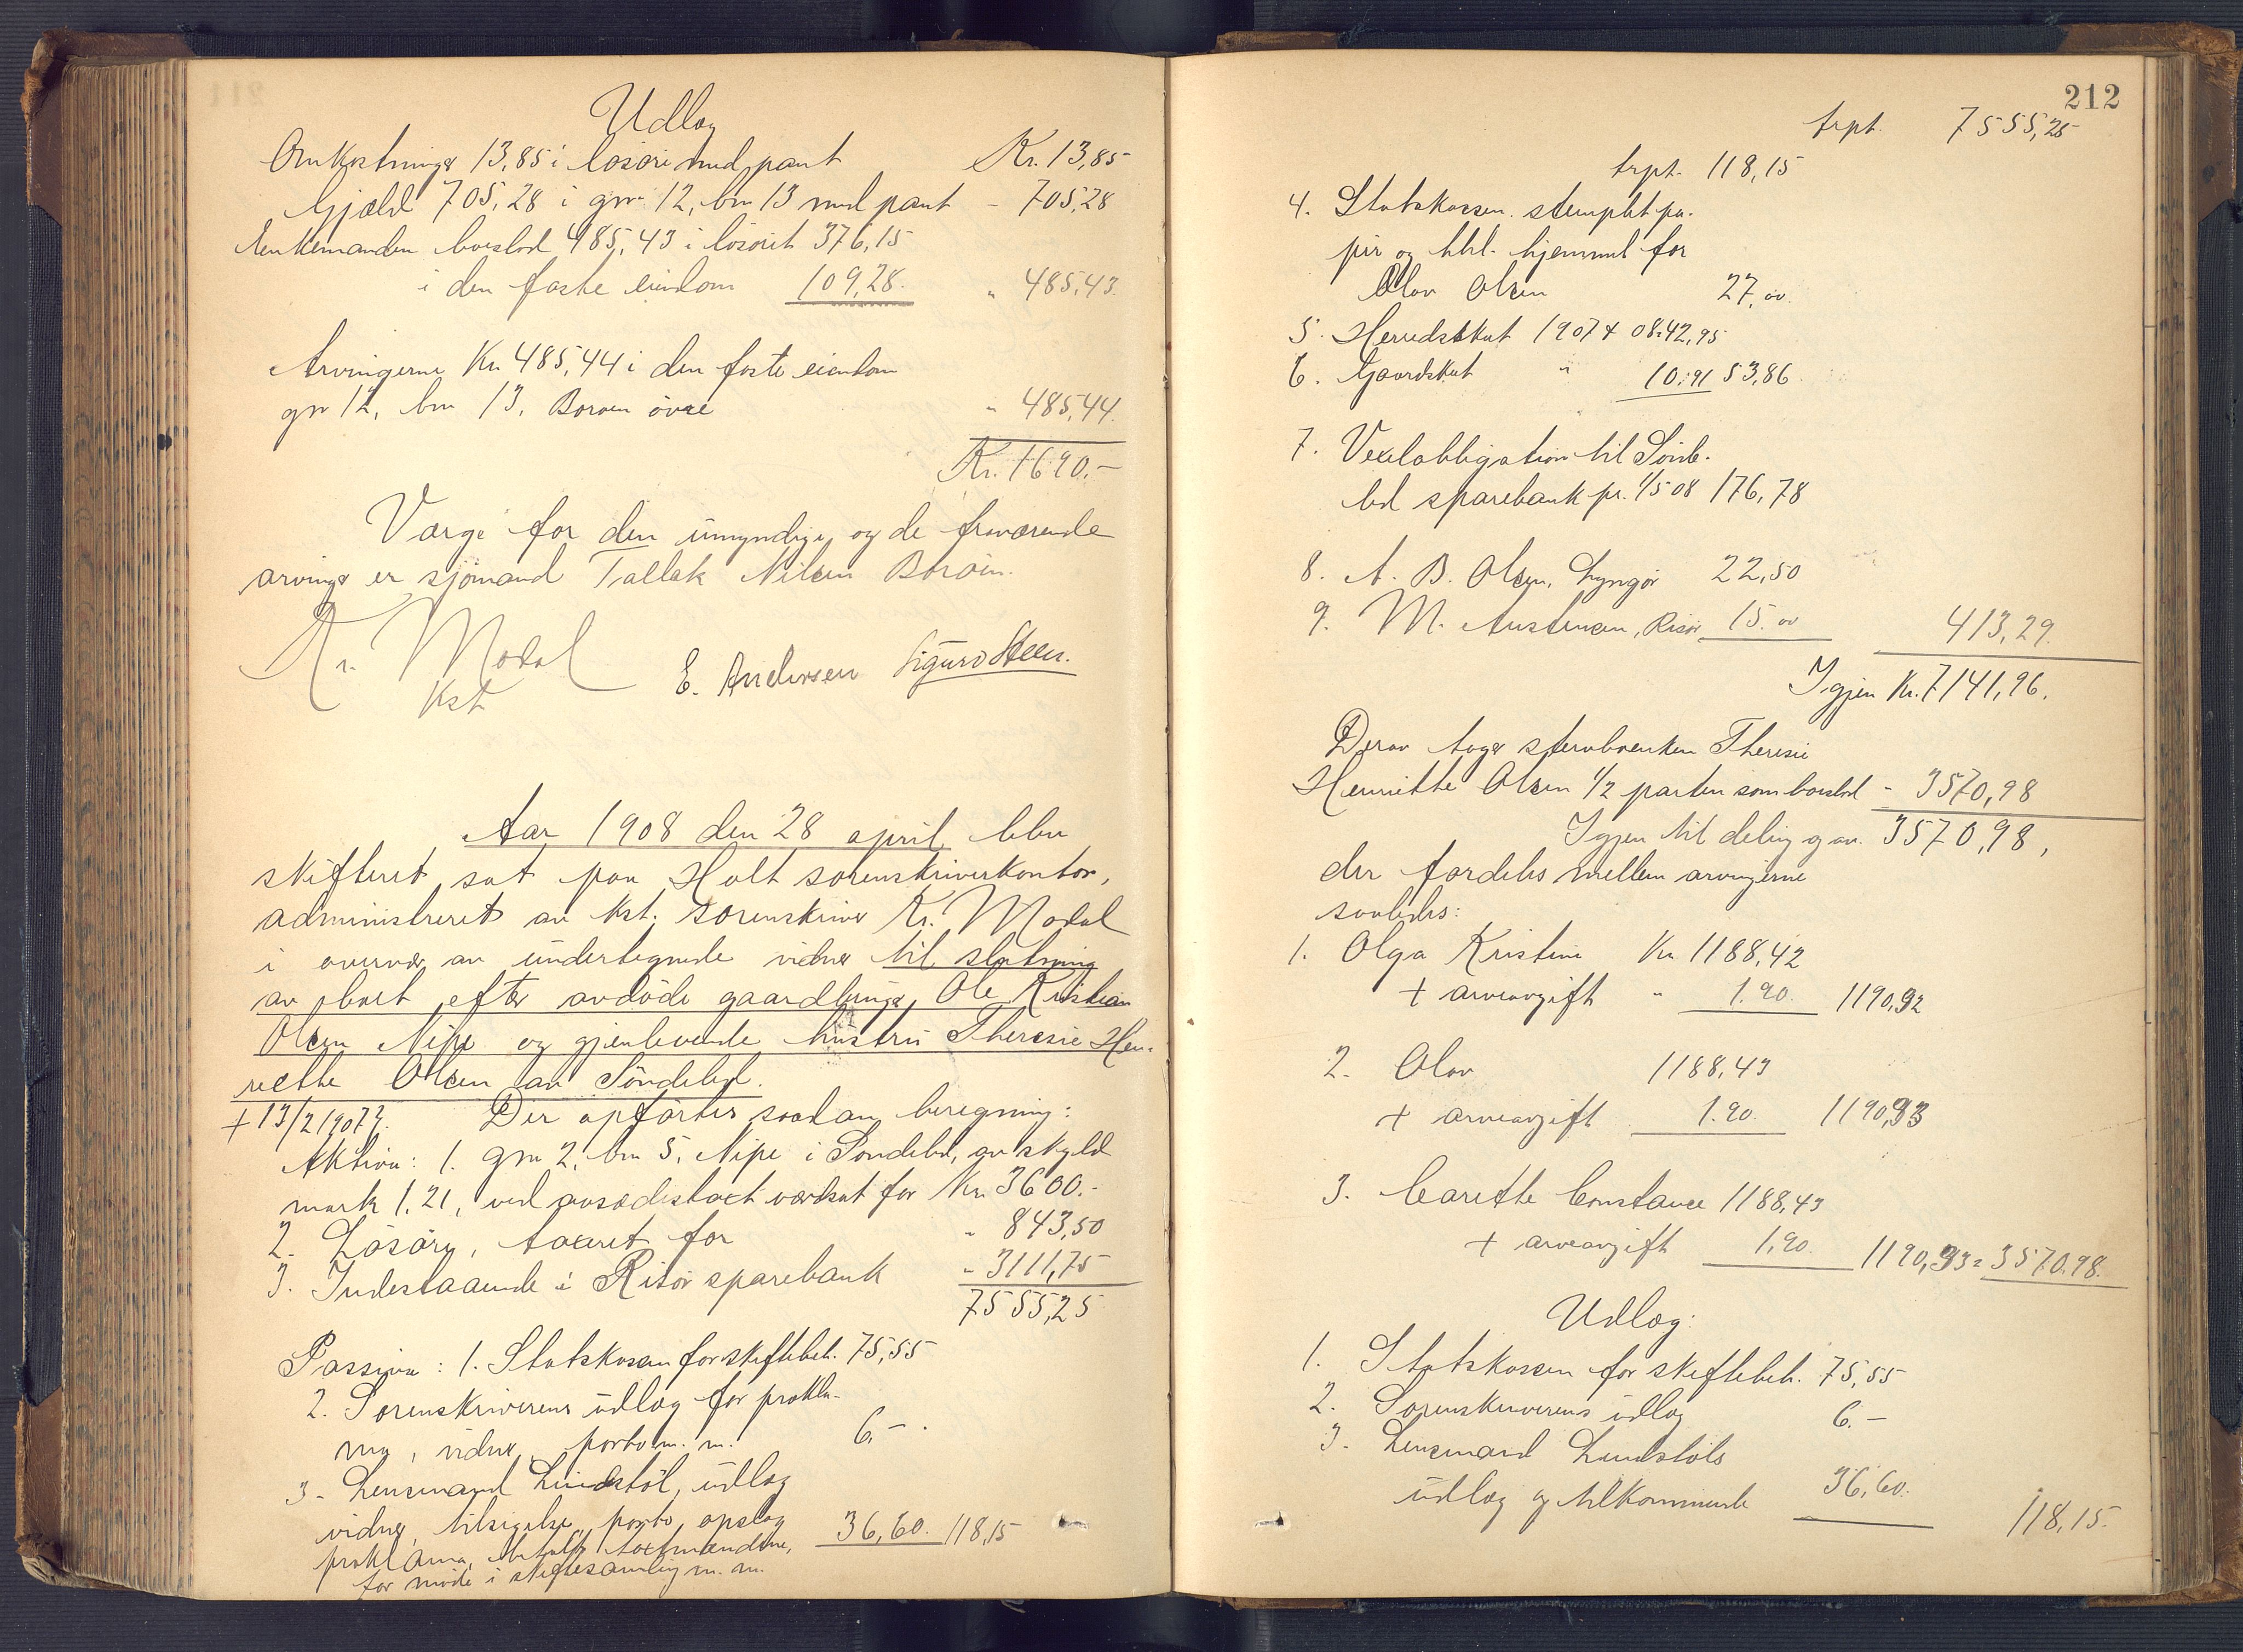 Udlæg
Omkostninger 13,85 i løsøre med pant Kr. 13,85
Gjæld 705,28 i gnr 12, bnr 13 med pant - 705,28
Enkemanden boeslod 485,43 i løsøret 376,15
i den faste eiendom 109,28. " 485,43.
Arvingerne Kr. 485,44 i den faste eiendom
gnr 12, bnr 13, Borøen øvre " 485,44.
Kr. 1690.-
Værge for den umyndige og de fraværende
arvinger er sjømand Tallak Nilsen Borøen.
Kr. Modal E. Andersen Sigurd Steen.
Kst
Aar 1908 den 28 april blev
skifteret sat paa Holt sorenskriverkontor,
administreret av kst. sorenskriver Kr. Modal
i overvær av undertegnede vidner til slutning
av boet efter avdøde gaardbruger Ole Kristian
Olsen Nipe og gjenlevende hustru Theresie Hen-
riette Olsen av Søndeled.
+ 13/2 1907?. Der opførtes saadan beregning:
Aktiva: 1. gnr 2, bnr 5, Nipe i Søndeled, av skyld
mark 1,21, ved avsædestaxt værdsat for Kr. 3600.-
2. Løsøre, taxeret for " 843,50
3. Indestaaende i Risør sparebank " 3111,75
7555,25
Passiva: 1. Statskassen for skiftebeh. 75,55
2. Sorenskriverens udlæg for prokla-
ma, vidner, porto m. m. 6,-
3. Lensmand Lindstøl, udlæg
vidner, tilsigelse, porto, opslag
proklama, betalt taxtmændene, 36,60. 118,15
for møde i skiftesamling m. m.
212
trpt. 7555,25
trpt. 118,15
4. Statskassen. stemplet pa-
pir og tbl. hjemmel for
Olav Olsen 27,00.
5. Herredskat 1907 + 08. 42,95
6. Gaardskat " 10,91 53,86
7. Vexelobligation til Sønde-
led sparebank pr. 1/5 08 176,78
8. A. B. Olsen, Lyngør 22,50
9. M. Austensen, Risør 15.00 413,29.
Igjen Kr. 7141,96.
Derav tager stervboenken Theresie
Henriette Olsen 1/2 parten som boeslod - 3570,98
Igjen til deling av. 3570,98,
der fordeles mellem arvingerne
saaledes:
1. Olga Kristine Kr 1188,42
+ arveavgift " 1.90. 1190,92
2. Olav 1188,43
+ arveavgift 1.90. 1190,93
3. Carette Constance 1188,43
+ arveavgift 1,90. 1190,93 = 3570.98.
Udlæg:
1. Statskassen for skiftebeh. 75,55
2. Sorenskriverens udlæg 6.-
3. Lensmand Lindstøls
udlæg og tilkommende 36,60. 118,15.